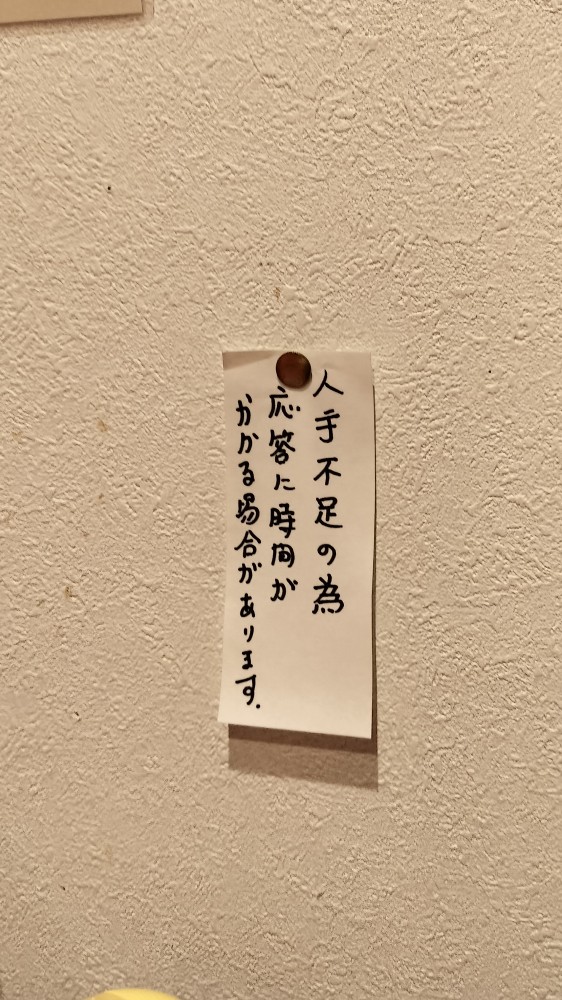 人手不足の為
応答に時間が
かかる場合があります.